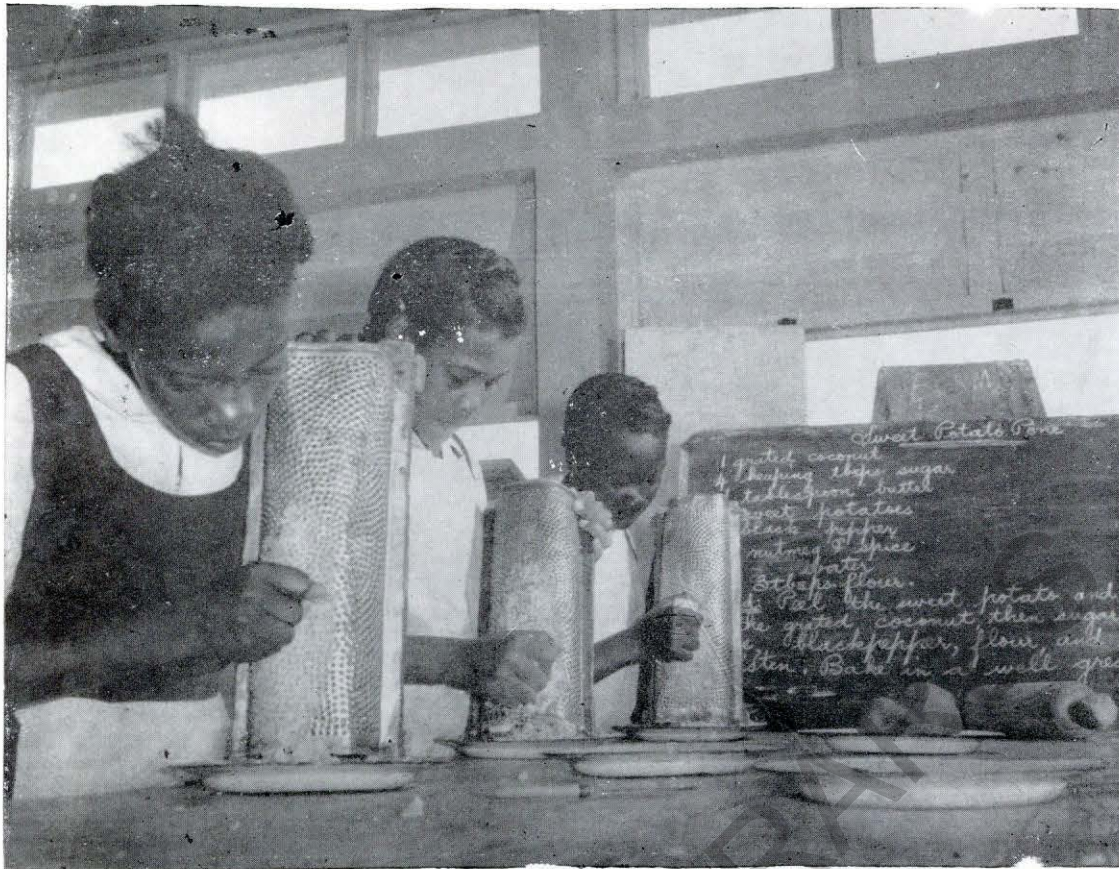 Sweet Potato Pone
1 grated coconut
heaping tbsps sugar
tablespoon butter
sweet potatoes
pepper
nutmeg & spice
water
3 tbsps flour.
Peel the sweet potato and
the grated coconut, then sugar
blackpepper, flour, and
Bake in a well gre